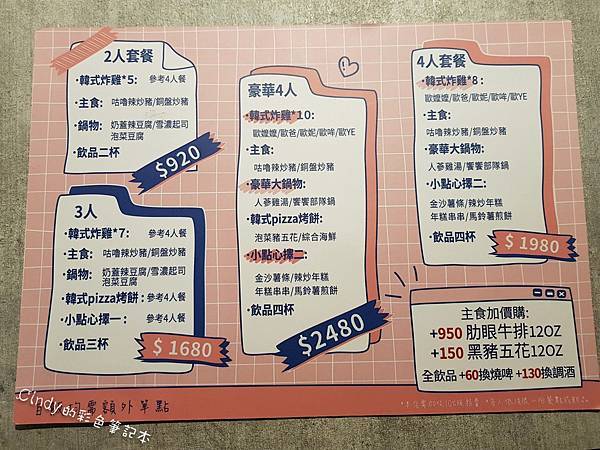 2人套餐
·韓式炸雞*5: 參考4人餐
·主食: 咕嚕辣炒豬/銅盤炒豬
·鍋物: 奶蓋辣豆腐/雪濃起司
泡菜豆腐
·飲品二杯
$920
3人
·韓式炸雞*7: 參考4人餐
·主食: 咕嚕辣炒豬/銅盤炒豬
·鍋物: 奶蓋辣豆腐/雪濃起司
泡菜豆腐
·韓式pizza烤餅: 參考4人餐
·小點心擇一: 參考4人餐
·飲品三杯
$ 1680
豪華4人
·韓式炸雞*10:
歐嬤嬤/歐爸/歐妮/歐哞/歐YE
·主食:
咕嚕辣炒豬/銅盤炒豬
·豪華大鍋物:
人蔘雞湯/饗饗部隊鍋
·韓式pizza烤餅:
泡菜豬五花/綜合海鮮
·小點心擇二:
金沙薯條/辣炒年糕
年糕串串/馬鈴薯煎餅
·飲品四杯
$2480
4人套餐
·韓式炸雞*8:
歐嬤嬤/歐爸/歐妮/歐哞/歐YE
·主食:
咕嚕辣炒豬/銅盤炒豬
·豪華大鍋物:
人蔘雞湯/饗饗部隊鍋
·小點心擇二:
金沙薯條/辣炒年糕
年糕串串/馬鈴薯煎餅
·飲品四杯
$ 1980
主食加價購:
+950 肋眼牛排12OZ
+150 黑豬五花12OZ
全飲品 +60換燒啤 +130換調酒
需額外單點
Cindy的彩色筆記本